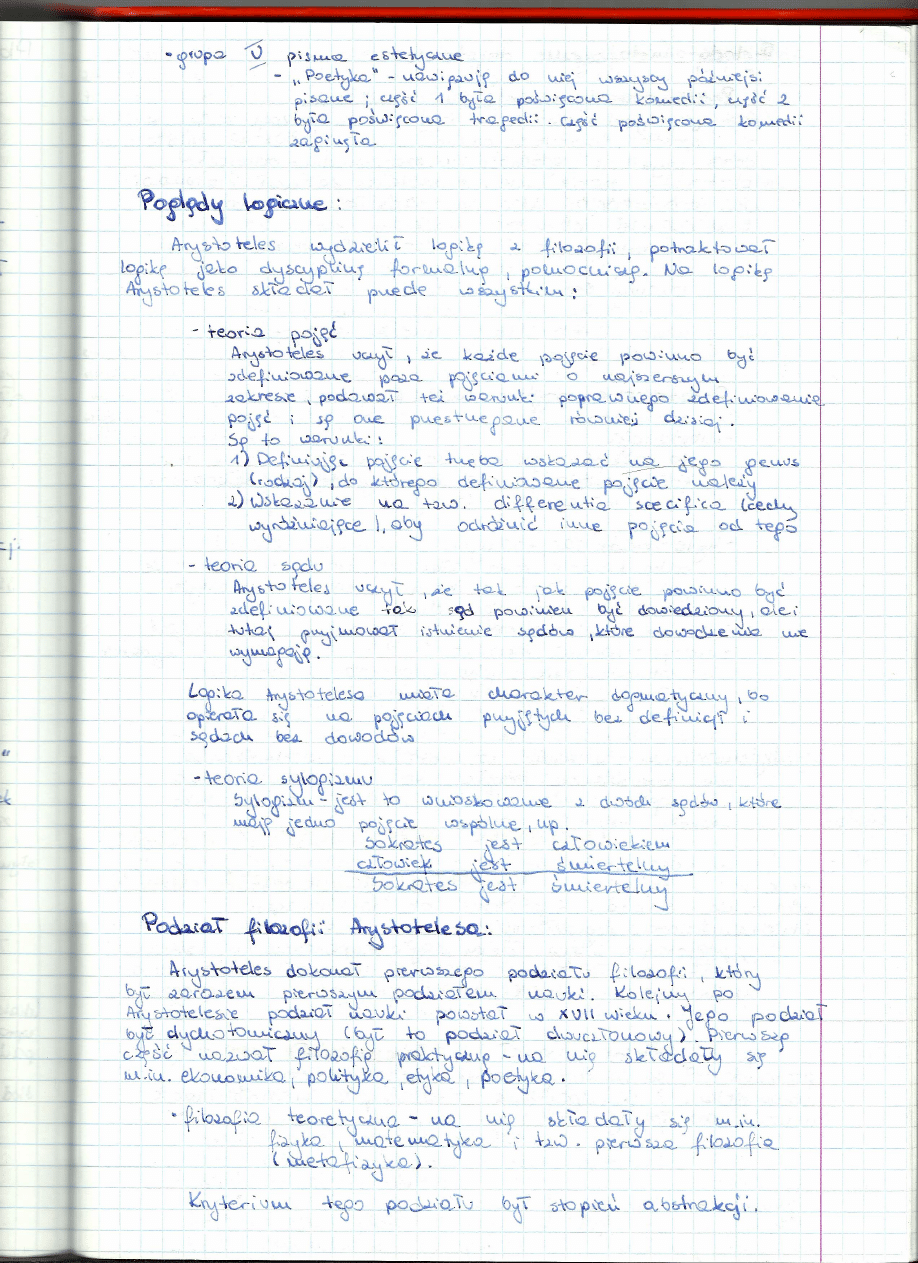 - grupa V pisma estetyczne
- „Poetyka" - nawiązują do niej wszyscy późniejsi
pisane; część 1 była poświęcona komedii, część 2
była poświęcona tragedii. Część poświęcona komedii
zaginęła
Poglądy logiczne:
Arystoteles wydzielił logikę z filozofii, potraktował
logikę jako dyscyplinę formalną, pomocniczą. Na logikę
Arystoteles składał przede wszystkim:
- teoria pojęć
Arystoteles uczył, że każde pojęcie powinno być
zdefiniowane poza pojęciami o najszerszym
zakresie, podawał też warunki poprawnego zdefiniowania
pojęć i są one przestrzegane również dzisiaj.
Są to warunki:
1) Definiując pojęcie trzeba wskazać na jego genus
(rodzaj), do którego definiowane pojęcie należy
2) Wskazanie na tzw. differentia specifica (cechy
wyróżniające), aby odróżnić inne pojęcia od tego
- teoria sądu
Arystoteles uczył, że tak jak pojęcie powinno być
zdefiniowane tak sąd powinien być dowiedziony, ale i
tutaj przyjmował istnienie sądów, które dowodzenia nie
wymagają.
Logika Arystotelesa miała charakter dogmatyczny, bo
opierała się na pojęciach przyjętych bez definicji i
sądach bez dowodów
- teoria sylogizmu
Sylogizm - jest to wnioskowanie z dwóch sądów, które
mają jedno pojęcie wspólne, np.
Sokrates jest człowiekiem
człowiek jest śmiertelny
Sokrates jest śmiertelny
Podział filozofii Arystotelesa:
Arystoteles dokonał pierwszego podziału filozofii, który
był zarazem pierwszym podziałem nauki. Kolejny po
Arystotelesie podział nauki powstał w XVII wieku. Jego podział
był dychotomiczny (był to podział dwuczłonowy). Pierwszą
część nazwał filozofią praktyczną - na nią składały się
m.in. ekonomika, polityka, etyka, poetyka.
• filozofia teoretyczna - na nią składały się m.in.
fizyka, matematyka i tzw. pierwsza filozofia
(metafizyka).
Kryterium tego podziału był stopień abstrakcji.